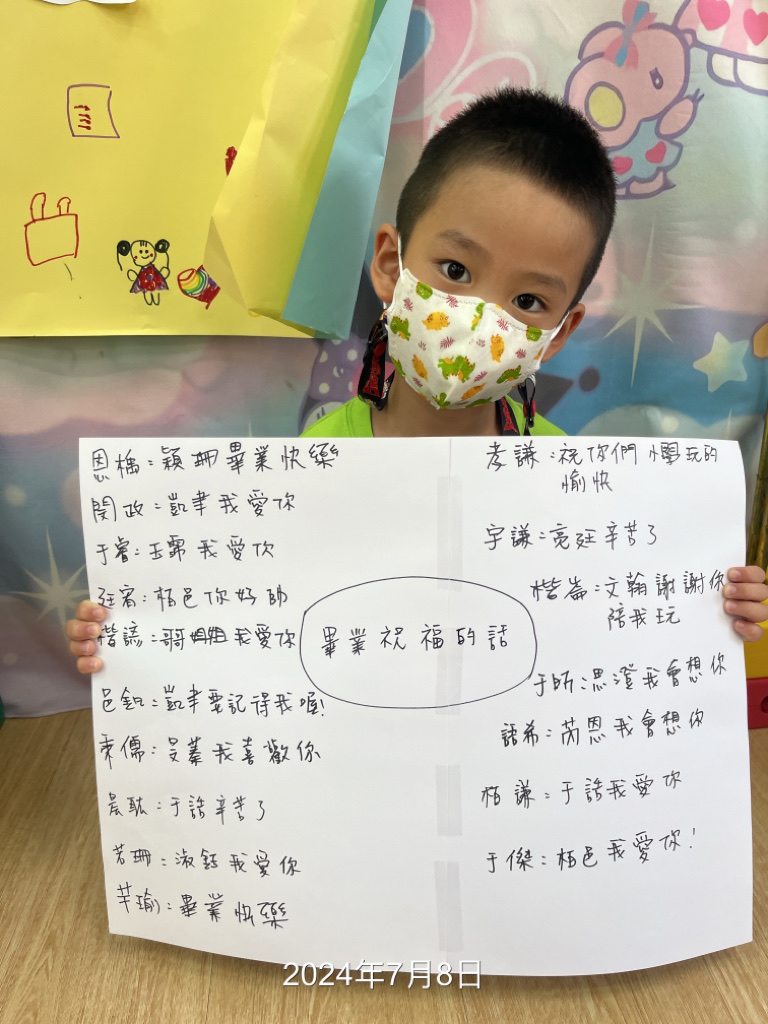 恩楀：穎珊畢業快樂
閔政：凱聿我愛你
于睿：玉霈我愛你
廷宥：栢邑你好帥
楷諺：哥姐姐我愛你
邑鈅：凱聿要記得我喔！
秉儒：旻蓁我喜歡你
晨耘：于語辛苦了
若珊：淑鈺我愛你
芊瑜：畢業快樂
畢業祝福的話
孝謙：祝你們 玩的
愉快
宇謙：亮廷辛苦了
楷崙：文翰謝謝你
陪我玩
于昕：思澄我會想你
語希：芮恩我會想你
栢謙：于語我愛你
于傑：栢邑我愛你！
2024年7月8日